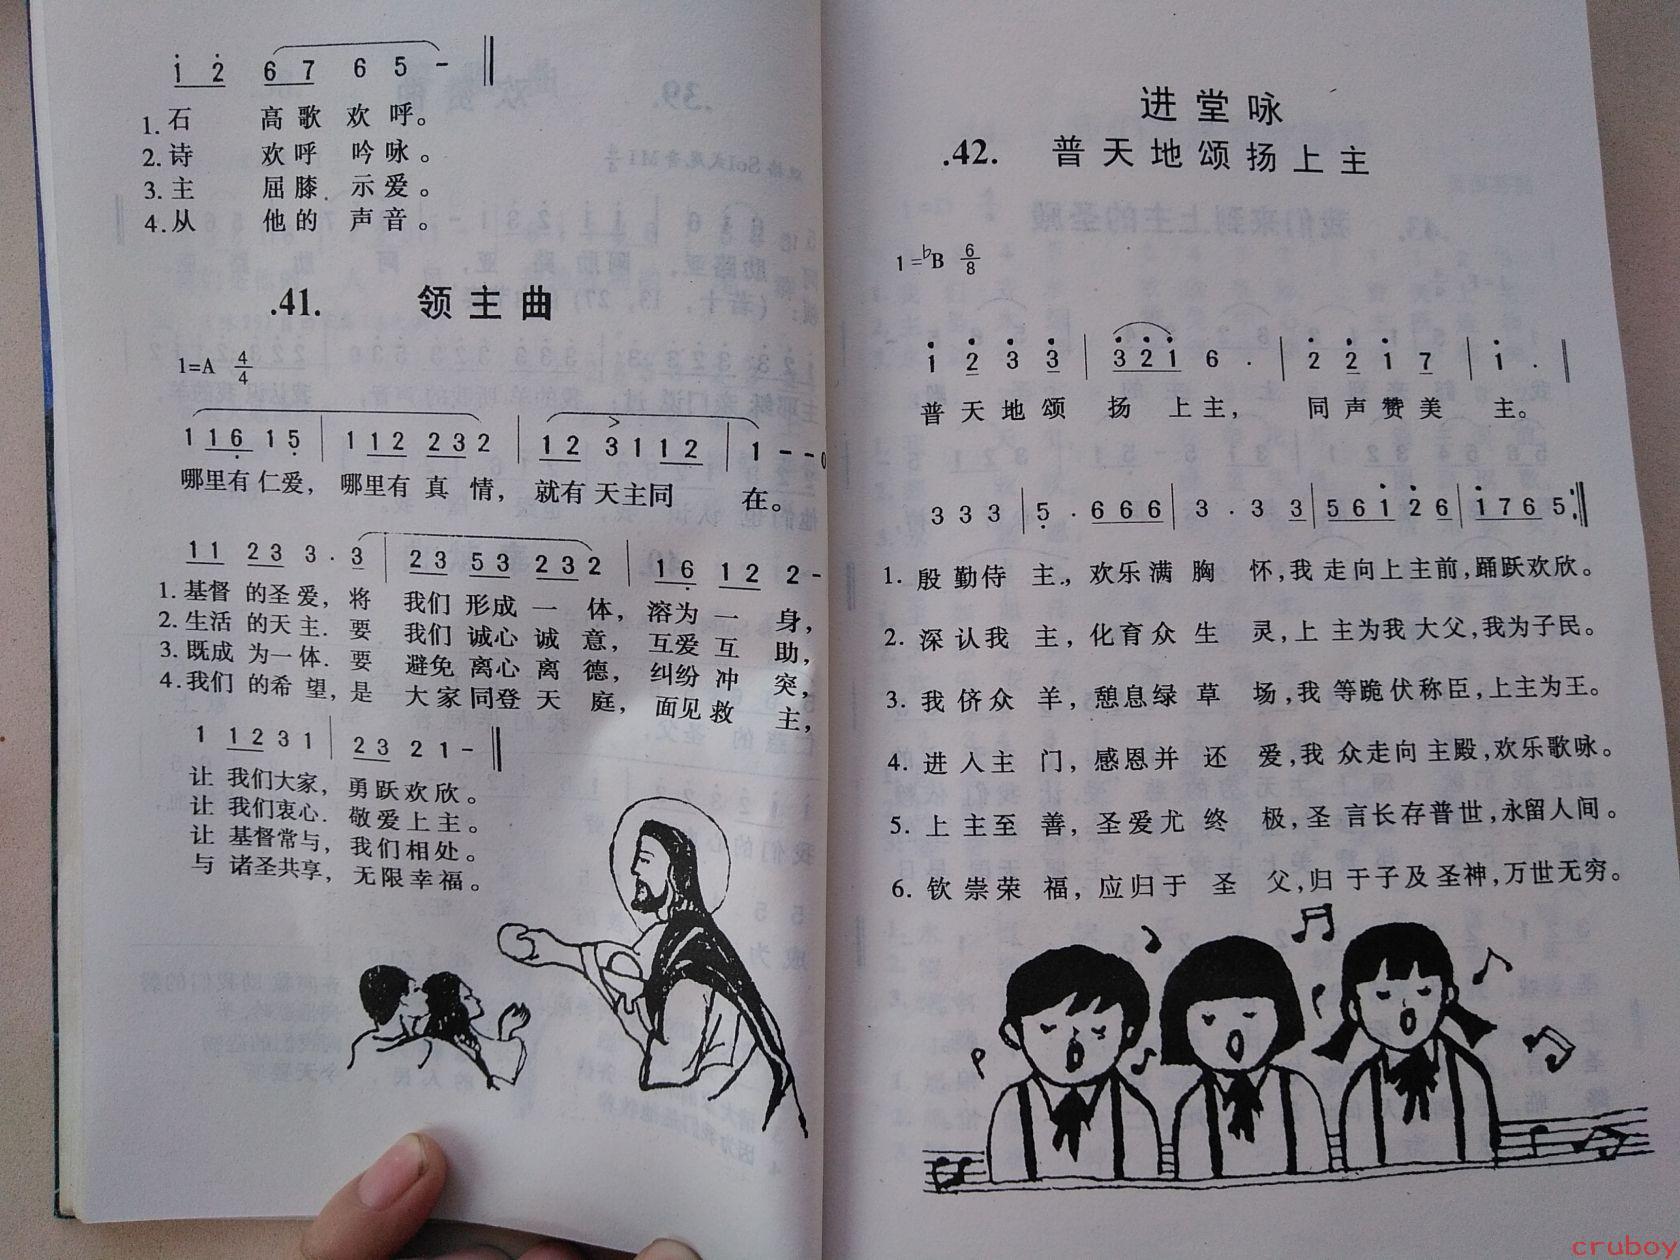 1̇ 2̇ 6 7 6 5 -
1.石 高歌 欢 呼。
2.诗 欢呼 吟咏。
3.主 屈膝 示爱。
4.从 他的 声音。
.41. 领主曲
1=A 4/4
1 1 6̣ 1 5̣ | 1 1 2 2 3 2 | 1 2 3 1 1 2 | 1 - - 0
哪里有仁爱, 哪里有真情, 就有天主同 在。
1 1 2 3 3 . 3 | 2 3 5 3 2 3 2 | 1 6̣ 1 2 2 -
1.基督 的圣爱, 将 我们 形成 一 体, 溶为 一 身,
2.生活 的天主. 要 我们 诚心 诚 意, 互爱 互 助,
3.既成 为一体. 要 避免 离心 离 德, 纠纷 冲 突,
4.我们 的希望, 是 大家 同登 天 庭, 面见 救 主,
1 1 2 3 1 | 2 3 2 1 -
让 我们大家, 勇跃欢欣。
让 我们衷心. 敬爱上主。
让 基督常与, 我们相处。
与 诸圣共享, 无限幸福。
进堂咏
.42. 普天地颂扬上主
1=♭B 6/8
1̇ 2̇ 3̇ 3̇ | 3̇ 2̇ 1̇ 6 . | 2̇ 2̇ 1̇ 7 | 1̇ .
普天地颂 扬 上主, 同声赞美 主。
3 3 3 | 5̣ . 6 6 6 | 3 . 3 3 | 5 6 1̇ 2̇ 6 | 1̇ 7 6 5 :
1. 殷勤侍 主., 欢乐满胸 怀,我走向上主前,踊跃欢欣。
2. 深认我 主, 化育众生 灵,上主为我大父,我为子民。
3. 我侪众 羊, 憩息绿草 场,我等跪伏称臣,上主为王。
4. 进入主 门, 感恩并还 爱,我众走向主殿,欢乐歌咏。
5. 上主至 善, 圣爱尤终 极,圣言长存普世,永留人间。
6. 钦崇荣 福, 应归于圣 父,归于子及圣神,万世无穷。
cruboy